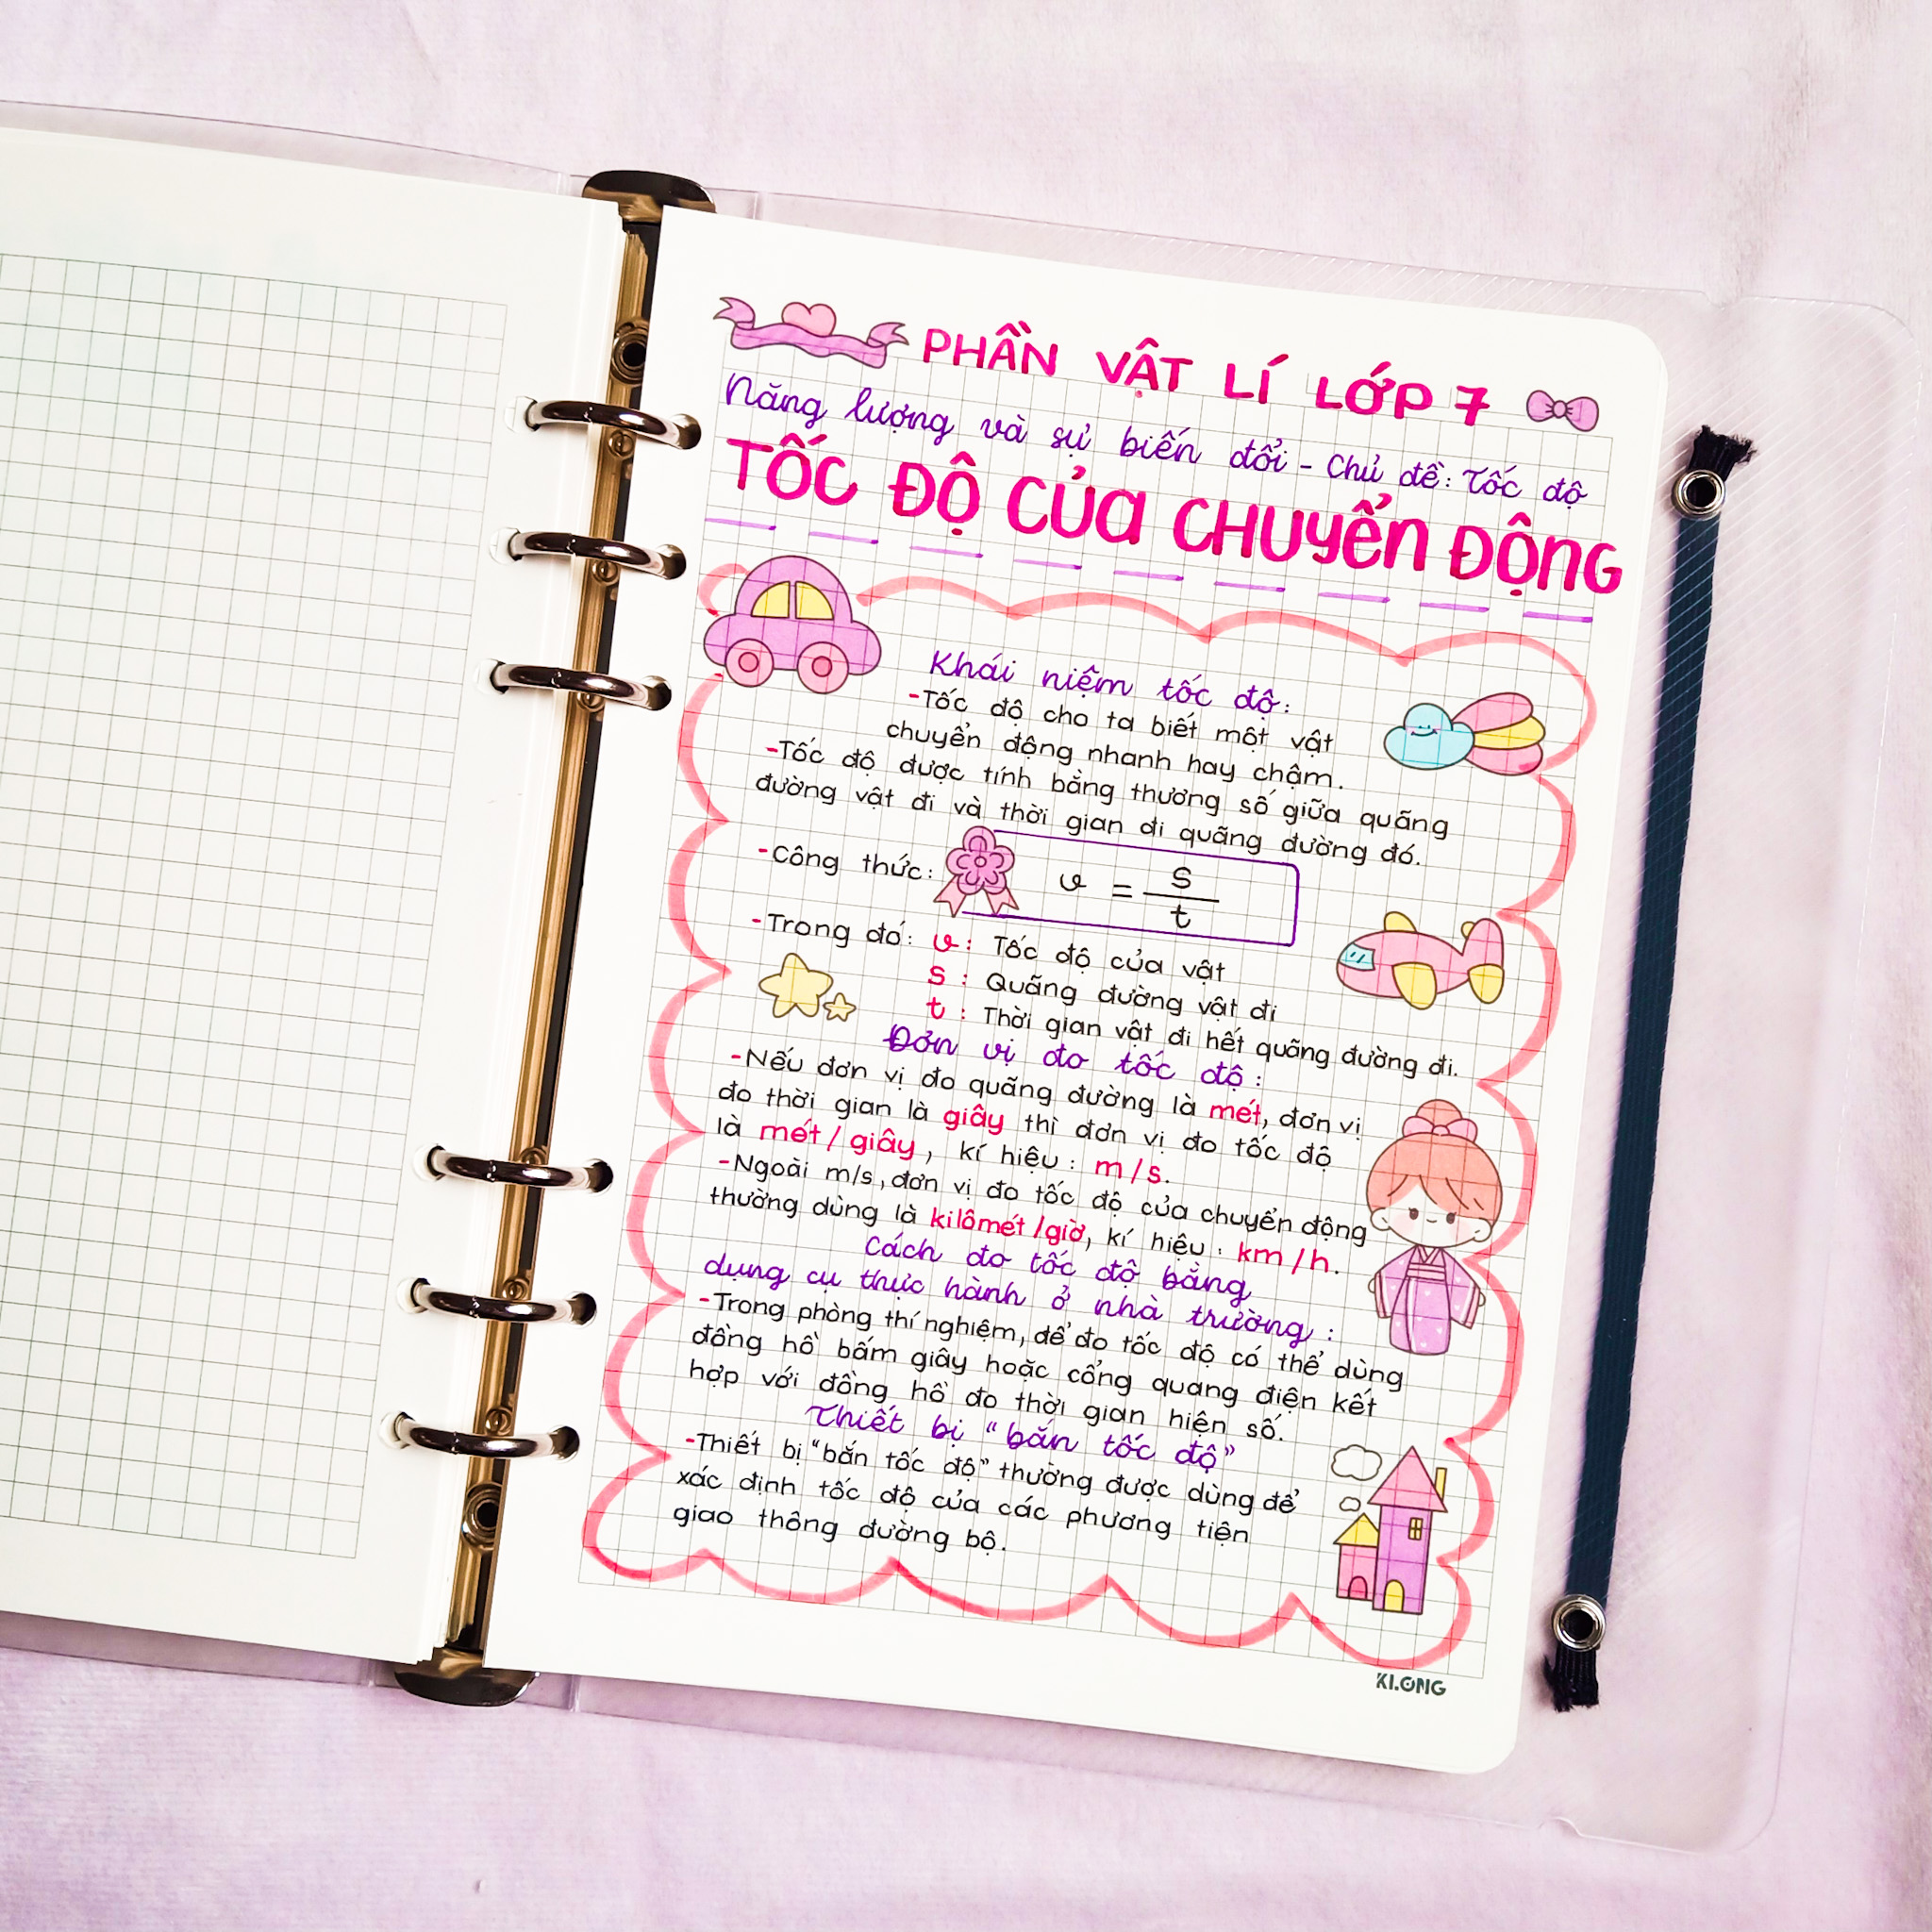 PHẦN VẬT LÍ LỚP 7
Năng lượng và sự biến đổi - Chủ đề: Tốc độ
TỐC ĐỘ CỦA CHUYỂN ĐỘNG
Khái niệm tốc độ:
-Tốc độ cho ta biết một vật
chuyển động nhanh hay chậm.
-Tốc độ được tính bằng thương số giữa quãng
đường vật đi và thời gian đi quãng đường đó.
-Công thức: v = s/t
-Trong đó: v: Tốc độ của vật
s: Quãng đường vật đi
t: Thời gian vật đi hết quãng đường đi.
Đơn vị đo tốc độ:
-Nếu đơn vị đo quãng đường là mét, đơn vị
đo thời gian là giây thì đơn vị đo tốc độ
là mét/giây, kí hiệu: m/s.
-Ngoài m/s, đơn vị đo tốc độ của chuyển động
thường dùng là kilômét/giờ, kí hiệu: km/h.
Cách đo tốc độ bằng
dụng cụ thực hành ở nhà trường:
-Trong phòng thí nghiệm, để đo tốc độ có thể dùng
đồng hồ bấm giây hoặc cổng quang điện kết
hợp với đồng hồ đo thời gian hiện số.
Thiết bị "bắn tốc độ"
-Thiết bị "bắn tốc độ" thường được dùng để
xác định tốc độ của các phương tiện
giao thông đường bộ.
KLONG